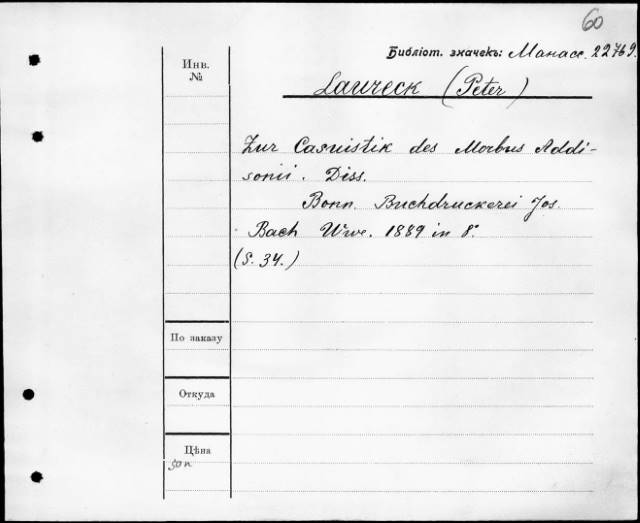 60
Библіот. значекъ: Манасс. 22769.
Инв. №
Laureck (Peter)
Zur Casuistik des Morbus Addi-
sonii. Diss.
Bonn. Buchdruckerei Jos.
Bach Wwe. 1889 in 8°
(S. 34.)
По заказу
Откуда
Цѣна